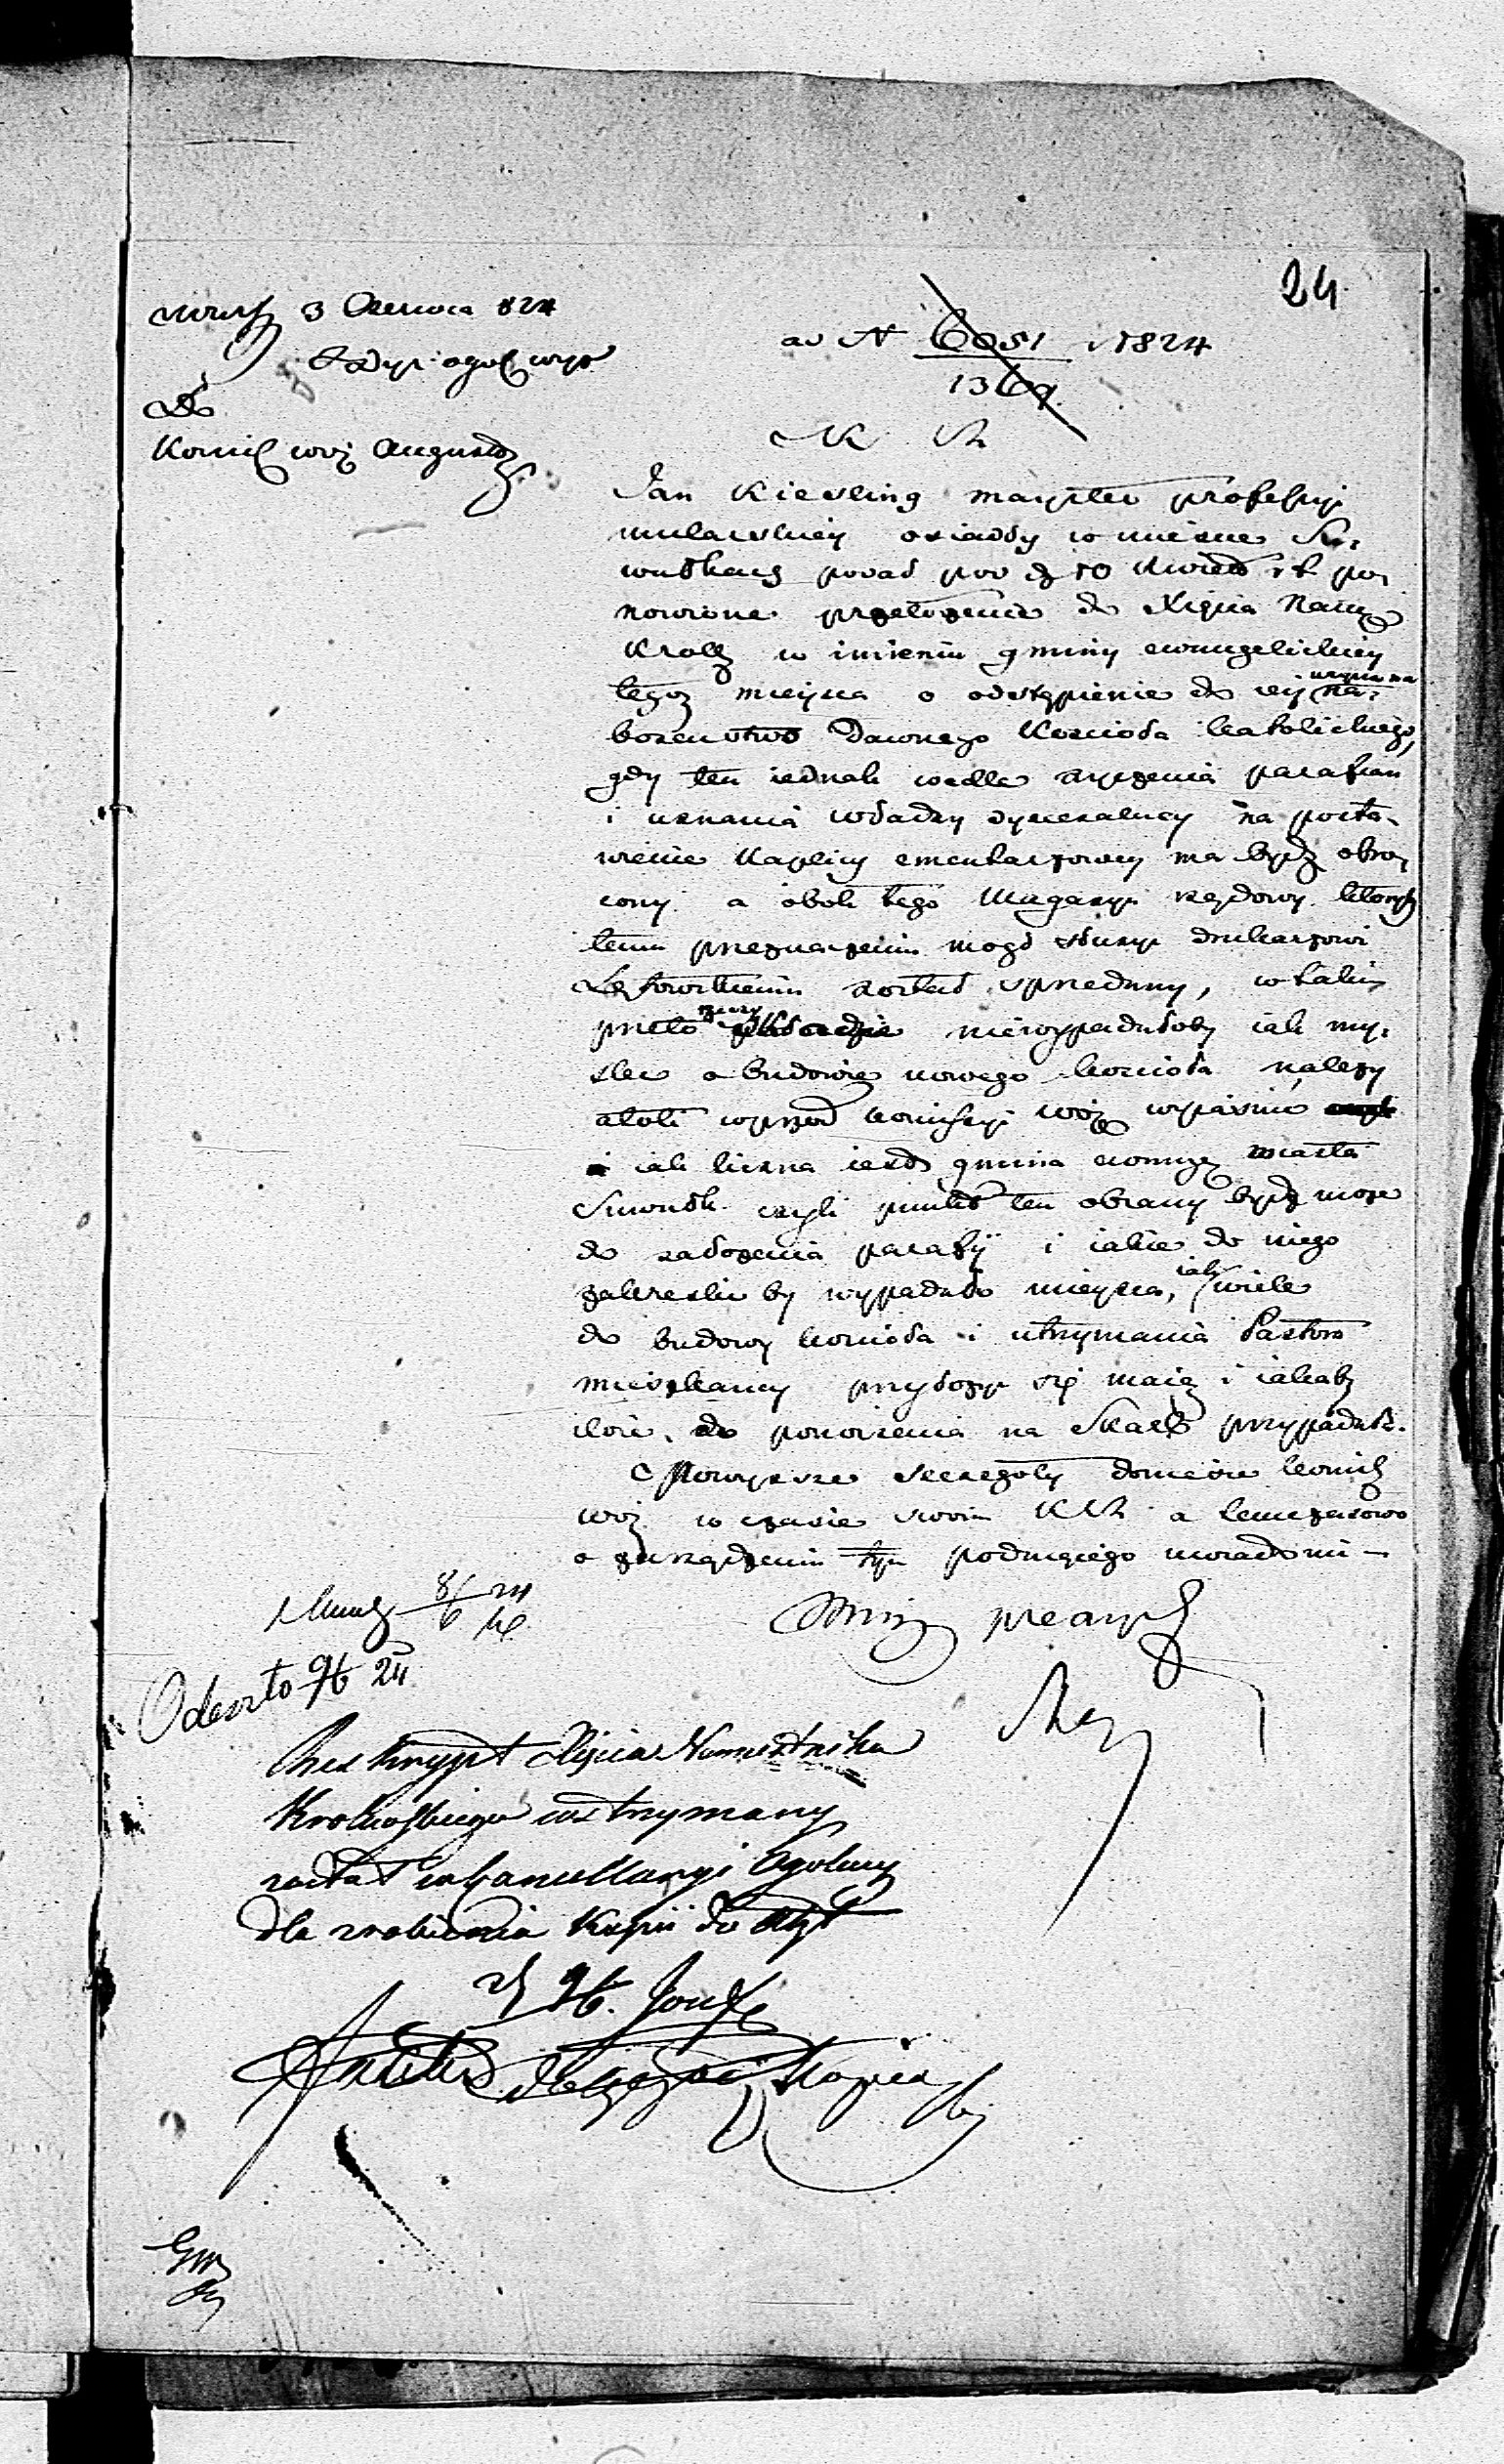 24
3 Czerwca 824
ad N 6051 1824
1369
Do
Komis woj August
K R
Jan Kiesling mayster professyi
mularskiey osiadły w mieście Su,
wałkach podał pod d 10 Kwiet r b po,
nowione przełożenie do Xięcia Nam
Król w imieniu gminy ewangelickiey
tegoż mieysca o odstąpienie do iey na,
bozenstwo Dawnego Kościoła katolickiego,
gdy ten iednak wedle życzenia parafian
i uznania władzy dyecezalney na posta,
wienie Kaplicy cmentarzowey ma bydź obró,
cony a obok tego Magazyn rządowy który
temu przeznaczeniu mógł służyć drukarzowi
został sprzedany, w takim
przeto niewypadałoby iak my,
slec o budowie nowego kościoła należy
atoli wprzod Komissyi woj wyiaśnić
iak liczna iest gmina ewang miasta
Suwałk czyli punkt ten obrany bydź może
do założenia parafij i iakie do niego
zakreślić by wypadało mieysca, iak wiele
do budowy kościoła i utrzymania Pastora
mieszkancy przyłożyć się maią i iakaby
ilość do poniesienia na Skarb przypadała.
Powyższe szczegóły doniesie Komis
woj w czasie swoim K R a tymczasowo
o zarządzeniu tym podaiącego uwiadomi
Odeszło 9/6 24
Reskrypt Xięcia Namiestnika
Królewskiego wstrzymany
został w Kancellaryi Ogólney
dla zrobienia Kopii do Akt